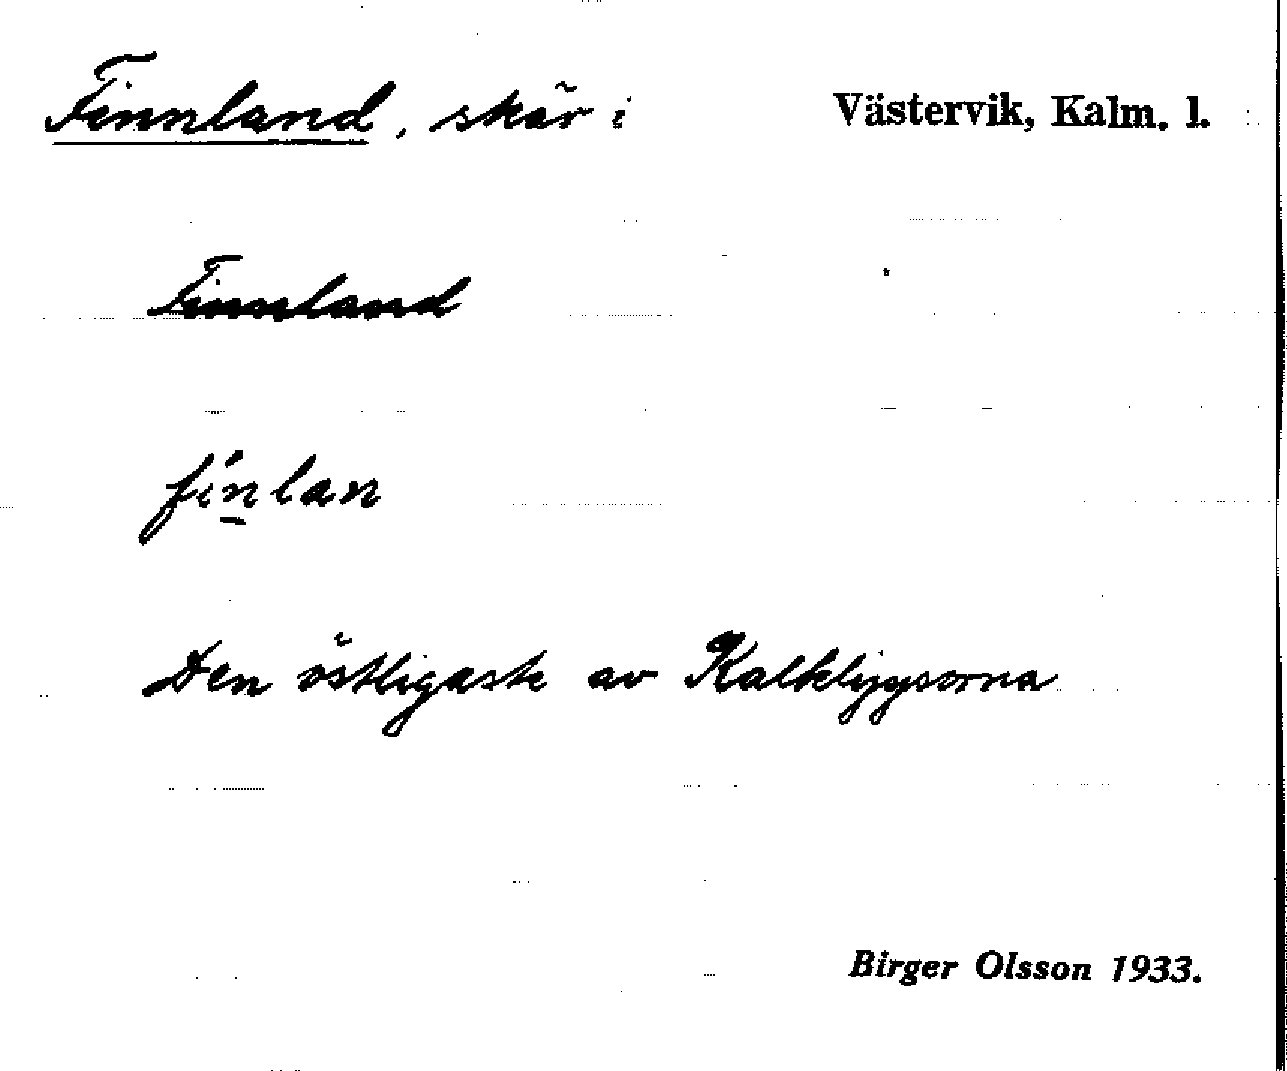 Finnland, skär i Västervik, Kalm. l.
Finnland
fínlan
Den östligaste av
Birger Olsson 1933.